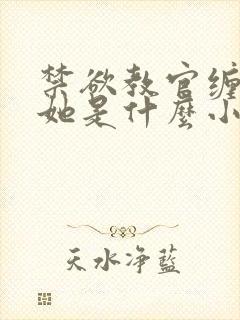 禁欲教官缠
她是什麼小
天水净藍